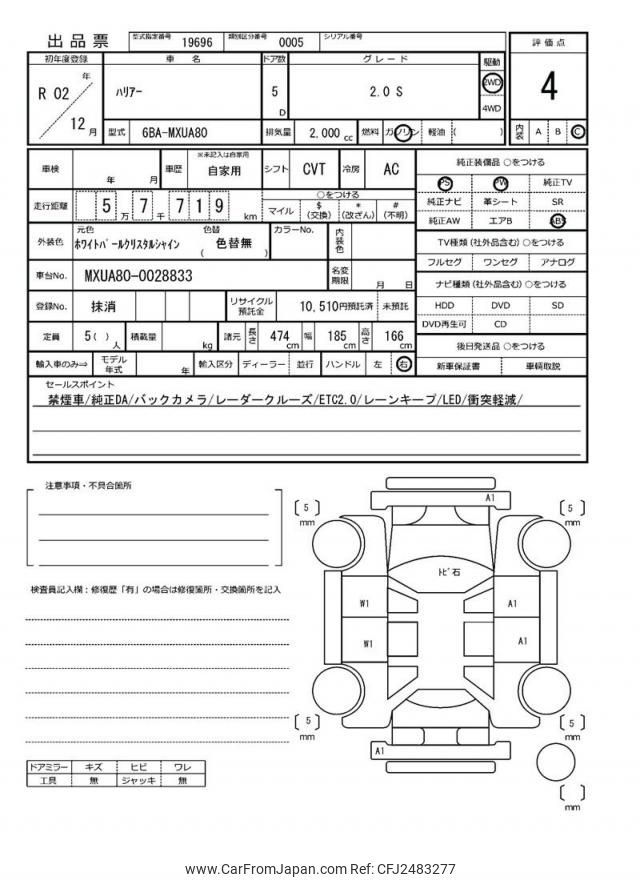 出品票 型式指定番号 19696 類別区分番号 0005 シリアル番号
初年度登録 車名 ドア数 グレード 駆動 評価点
R 02 年 12 月 ハリアー 5 D 2.0 S 2WD 4WD 4
型式 6BA-MXUA80 排気量 2,000 cc 燃料 ガソリン 軽油 ( ) 内装 A B C
車検 年 月 車歴 ※未記入は自家用 自家用 シフト CVT 冷房 AC
走行距離 5 万 7 千 7 1 9 km
○をつける
マイル $ (交換) * (改ざん) # (不明)
外装色 元色 ホワイトパールクリスタルシャイン 色替 ( 色替無 ) カラーNo. 内装色
車台No. MXUA80-0028833 名変期限 月 日
登録No. 抹消 リサイクル預託金 10,510円預託済 未預託
定員 5( ) 人 積載量 kg 諸元 長さ 474 cm 幅 185 cm 高さ 166 cm
輸入車のみ⇒ モデル年式 年 輸入区分 ディーラー 並行 ハンドル 左 右
純正装備品 ○をつける
PS PW 純正TV
純正ナビ 革シート SR
純正AW エアB ABS
TV種類(社外品含む)○をつける
フルセグ ワンセグ アナログ
ナビ種類(社外品含む)○をつける
HDD DVD SD
DVD再生可 CD
後日発送品 ○をつける
新車保証書 車輌取説
セールスポイント
禁煙車/純正DA/バックカメラ/レーダークルーズ/ETC2.0/レーンキープ/LED/衝突軽減/
注意事項・不具合箇所
検査員記入欄:修復歴「有」の場合は修復箇所・交換箇所を記入
ドアミラー キズ ヒビ ワレ
工具 無 ジャッキ 無
A1
[ 5 ] mm
[ 5 ] mm
トビ石
W1
A1
W1
A1
[ 5 ] mm
[ 5 ] mm
A1
[ ] mm
www.CarFromJapan.com Ref: CFJ2483277